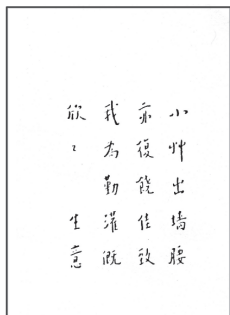 小艸出墙腰
亦復饒佳致
我為勤灌溉
欣〻生意